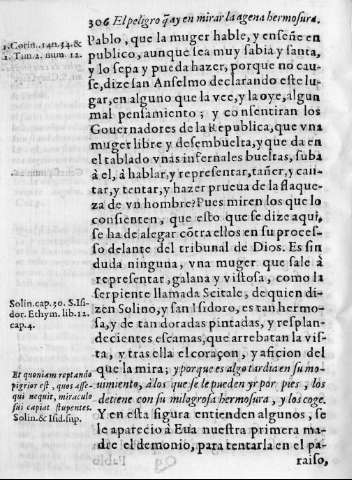 306 El peligro q̃ ay en mirar la agena hermosura.
1. Corin. 14 n. 34. &
1. Tim. 2. num. 12.
Pablo, que la muger hable, y enseñe en
publico, aunque sea muy sabia y santa,
y lo sepa y pueda hazer, porque no cau-
se, dize san Anselmo declarando este lu-
gar, en alguno que la vee, y la oye, algun
mal pensamiento; y consentiran los
Gouernadores de la Republica, que vna
muger libre y desembuelta, y que da en
el tablado vnas infernales bueltas, suba
à el, à hablar, y representar, tañer, y can-
tar, y tentar, y hazer prueua de la flaque-
za de vn hombre? Pues miren los que lo
consienten, que esto que se dize aqui,
se ha de alegar cõtra ellos en su proces-
so delante del tribunal de Dios. Es sin
duda ninguna, vna muger que sale à
representar, galana y vistosa, como la
serpiente llamada Scitale, de quien di-
zen Solino, y san Isidoro, es tan hermo-
sa, y de tan doradas pintadas, y resplan-
decientes escamas, que arrebatan la vis-
ta, y tras ella el coraçon, y aficion del
que la mira; y porque es algo tardia en su mo-
uimiento, à los que se le pueden yr por pies, los
detiene con su milagrosa hermosura, y los coge.
Y en esta sigura entienden algunos, se
le aparecio à Eua nuestra primera ma-
dre el demonio, para tentarla en el pa-
raiso,
Solin. cap. 30. S. Isi-
dor. Ethym. lib. 12.
cap. 4.
Et quoniam reptando
pigrior est, quos asse-
qui nequit, miraculo
sui capiat stupentes.
Solin. & Isid. sup.